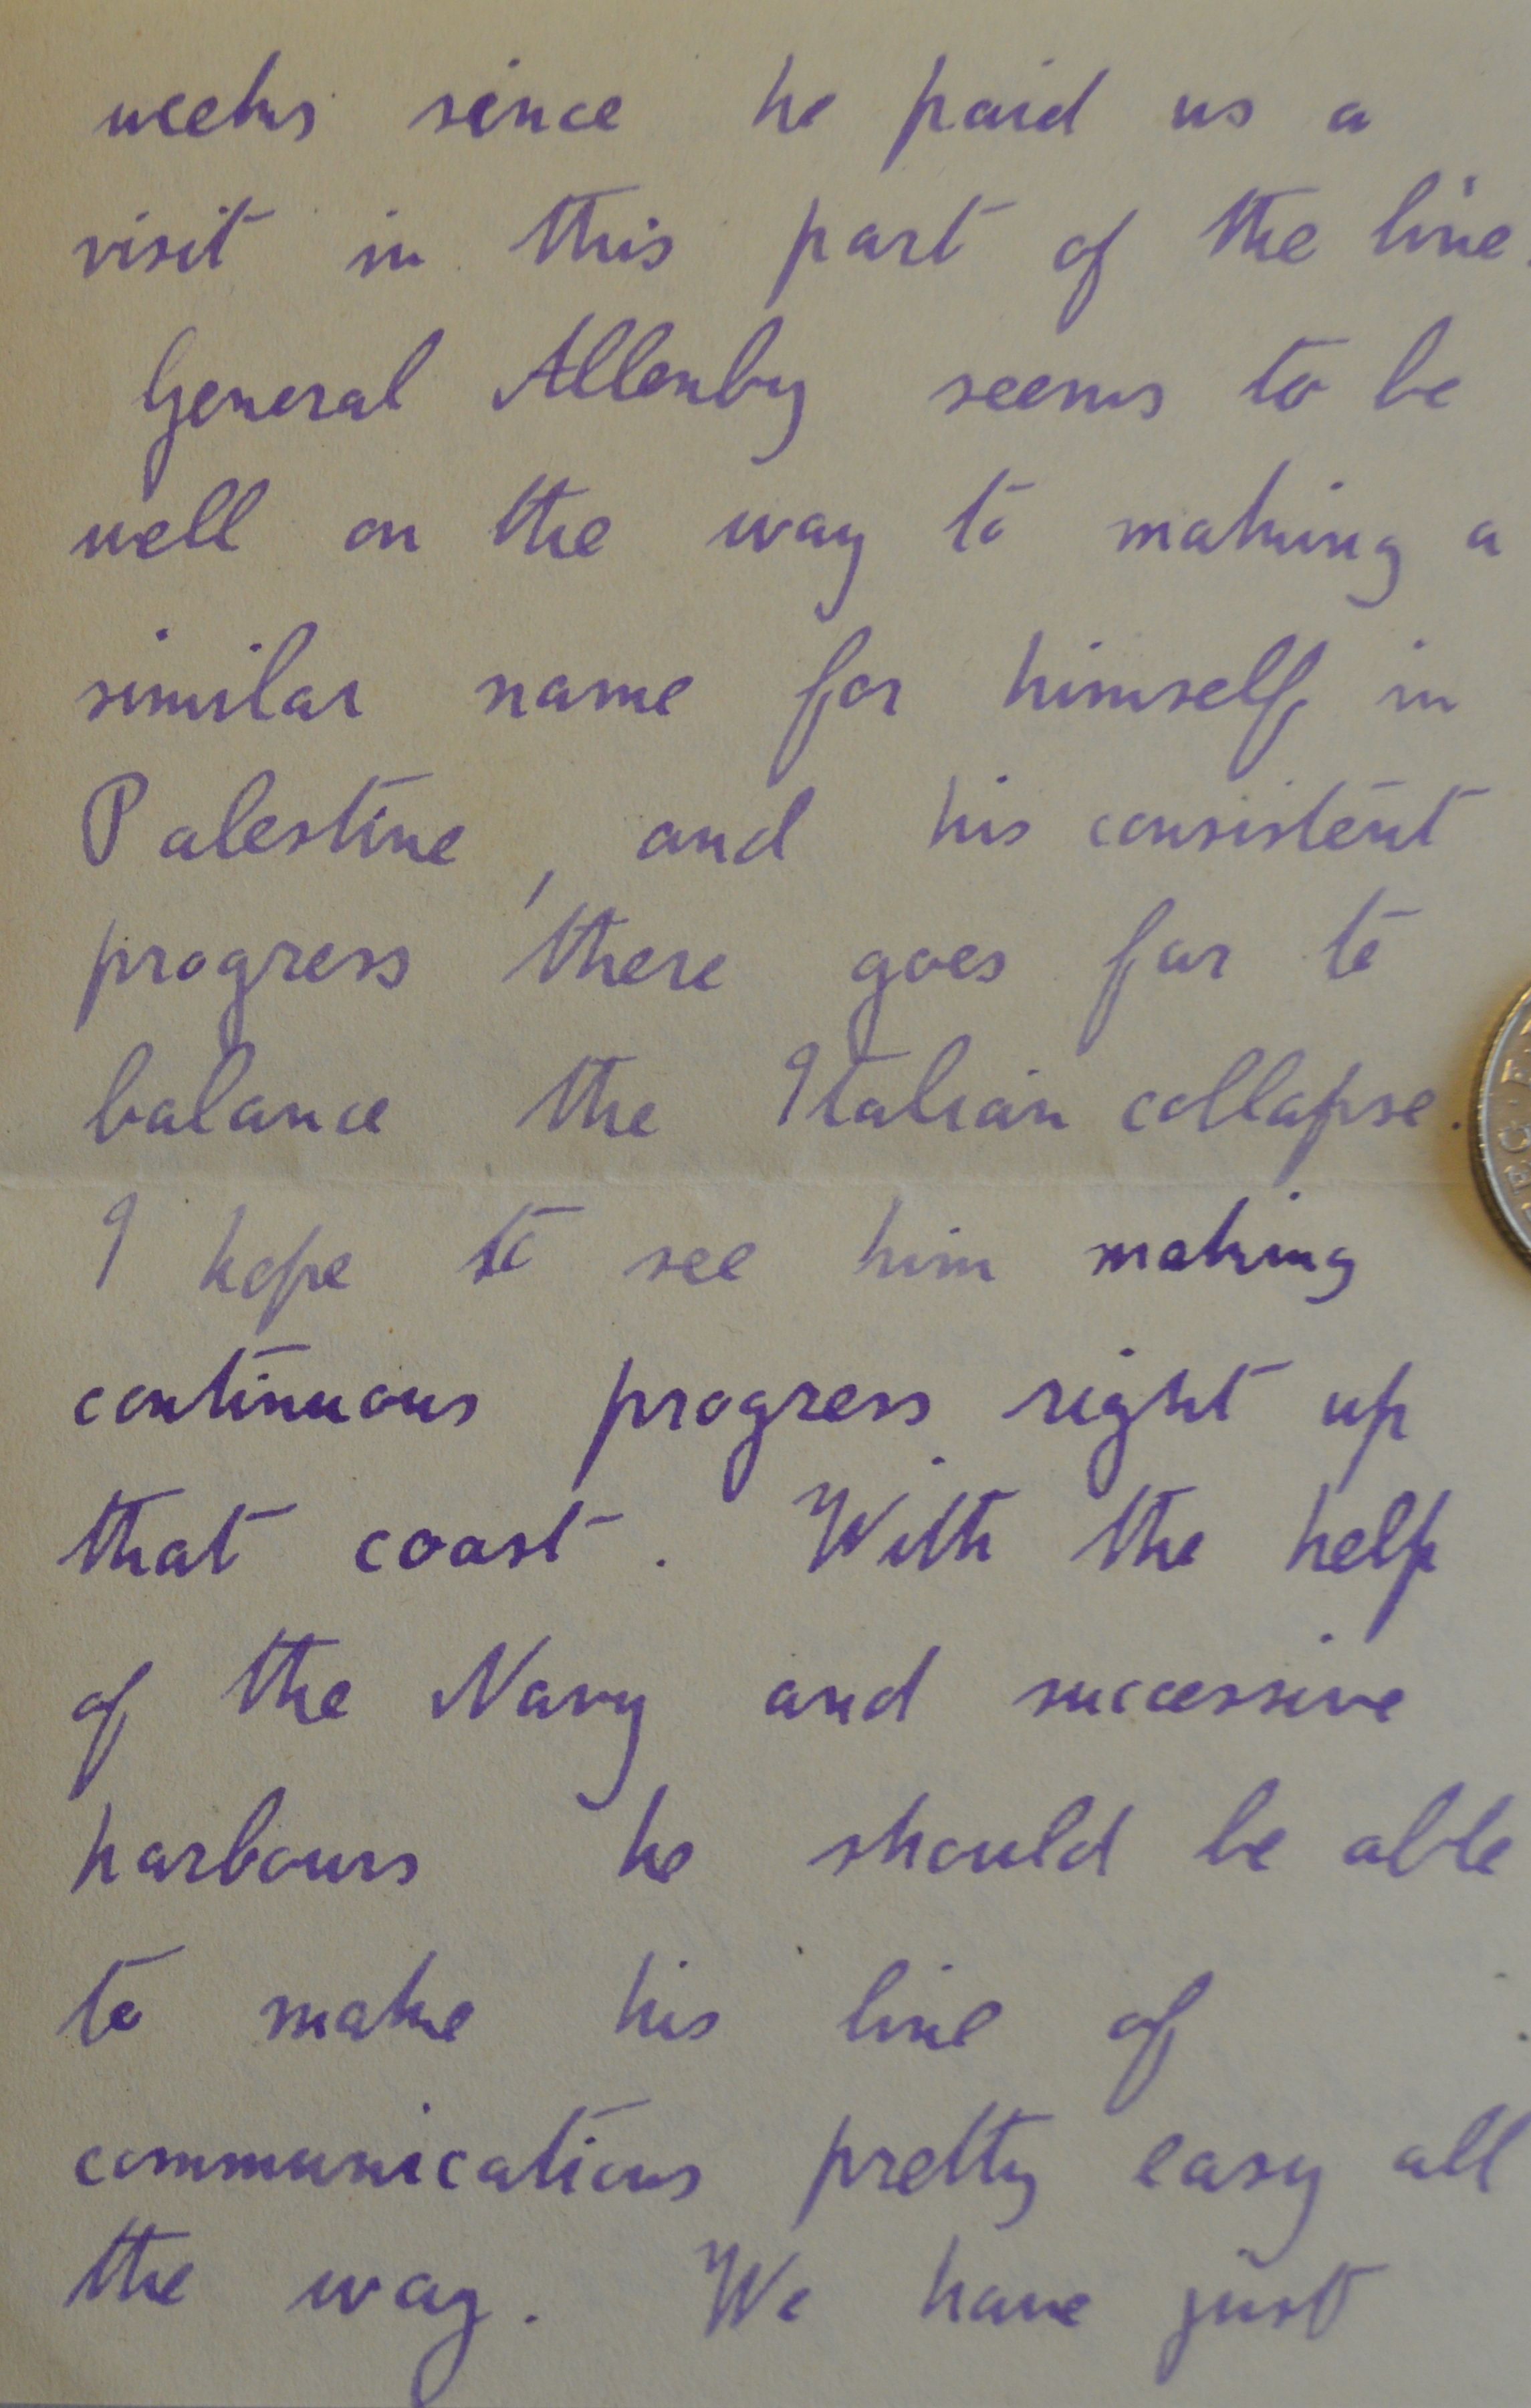 weeks since he paid us a
visit in this part of the line.
General Allenby seems to be
well on the way to making a
similar name for himself in
Palestine, and his consistent
progress there goes far to
balance the Italian collapse.
I hope to see him making
continuous progress right up
that coast. With the help
of the Navy and successive
harbours he should be able
to make his line of
communications pretty easy all
the way. We have just